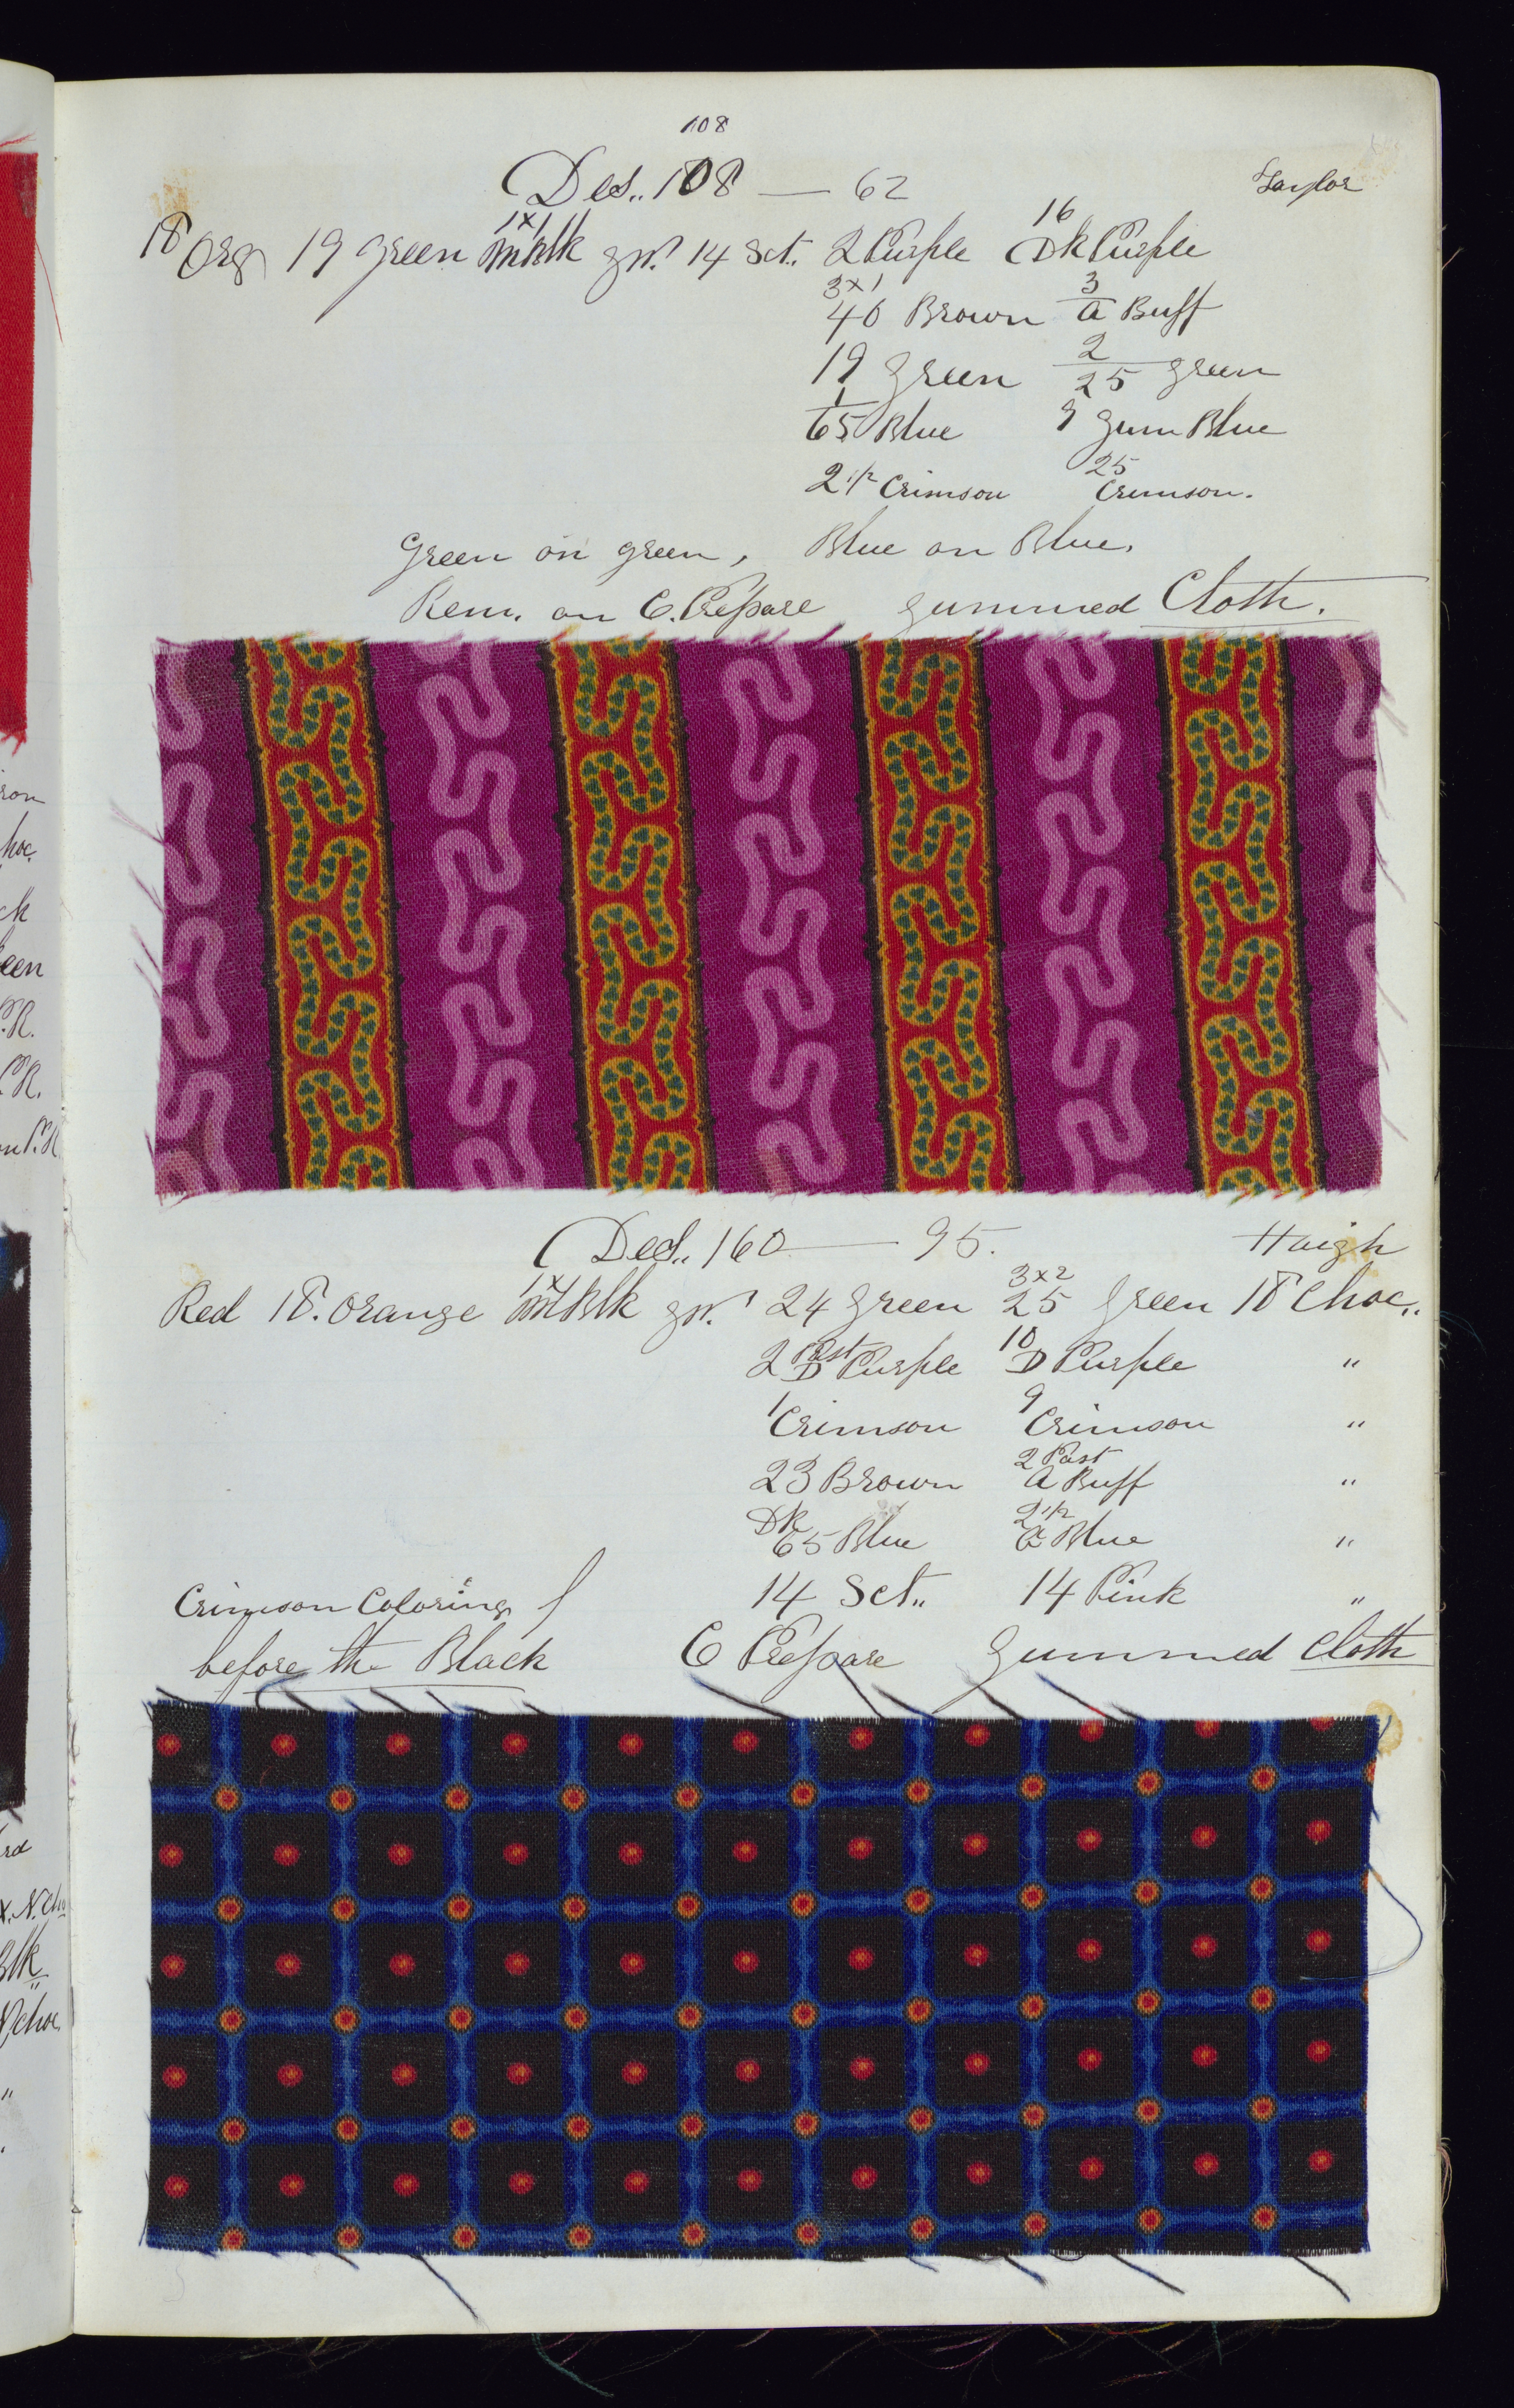 108
Des.. 108 — 62 Taylor
18 Org 19 green 1x1 mBlk gn. 14 Sct. 2 Purple 16 Dk Purple
3x1 40 Brown 3/a Buff
19 green 2/25 green
1/65 Blue 9 Gum Blue
2 1/2 Crimson 25 Crimson.
Green on green, Blue on Blue.
Rem. on C. Prepare gummed Cloth.
Des.. 160 — 95. Haigh
Red 18. Orange 1x1 mBlk gn. 24 Green 3x2 25 Green 18 Choc..
2 Past D Purple 10 D Purple "
1 Crimson 9 Crimson "
23 Brown 2 Past a Buff "
Dk 65 Blue 2 1/2 a Blue "
14 Sct.. 14 Pink "
Crimson Coloring
before the Black C Prepare Gummed Cloth